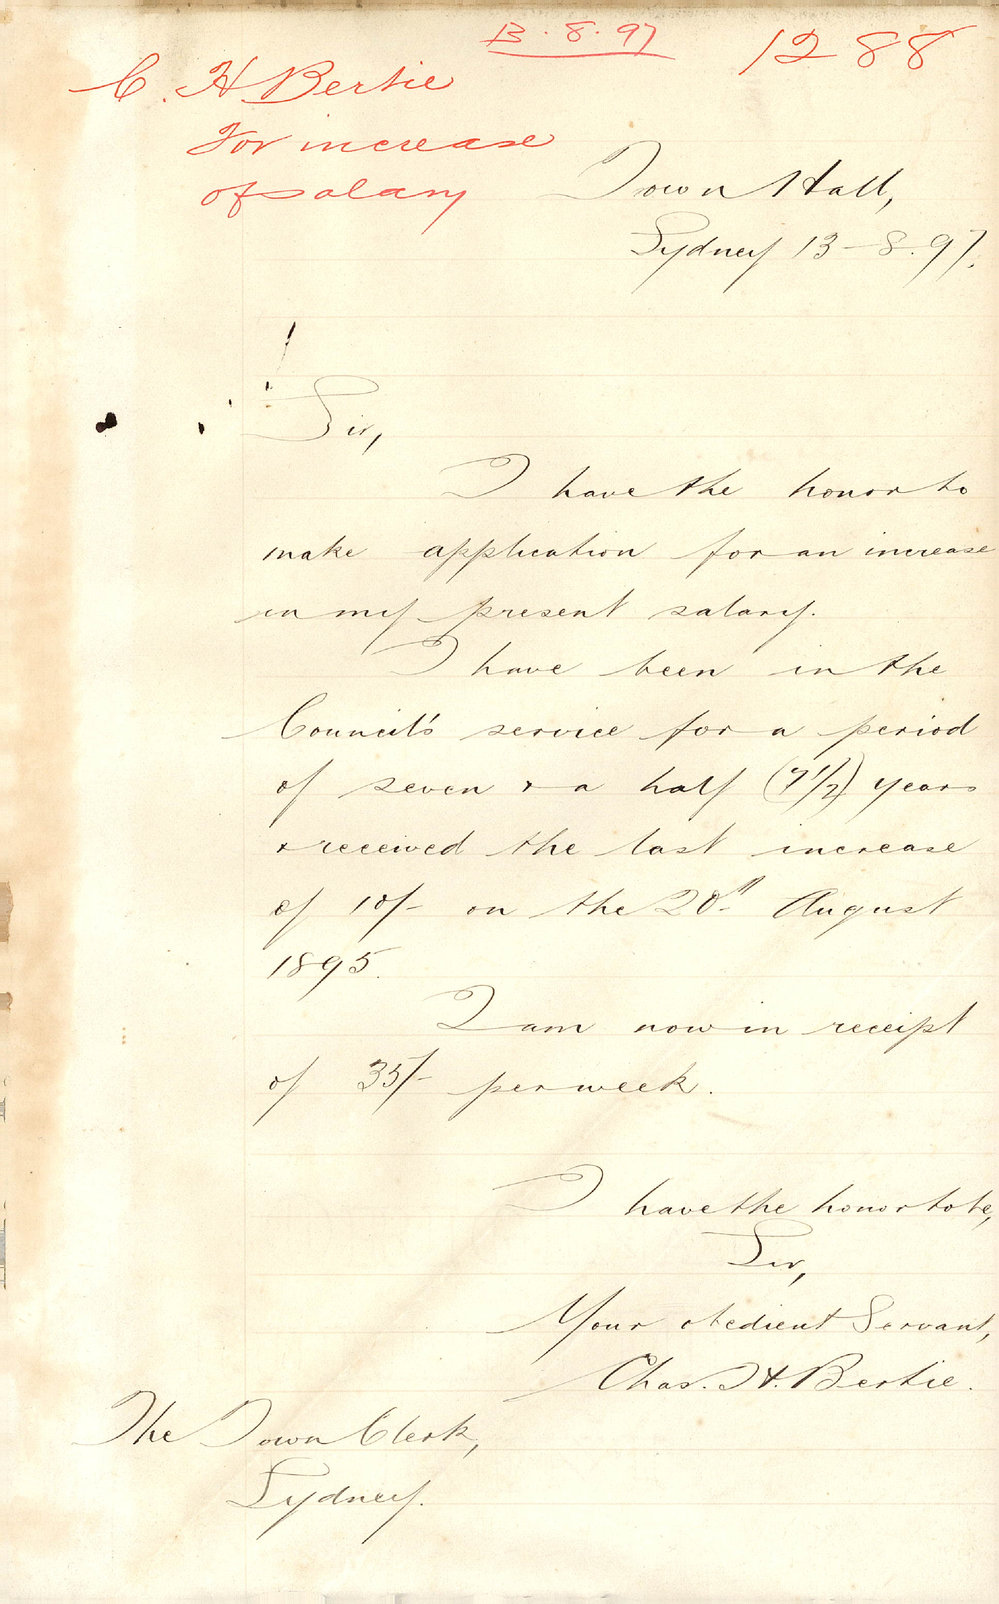 13.8.97
1288
C. H. Bertie
For increase
of salary
Town Hall,
Sydney 13-8.97.
Sir,
I have the honor to
make application for an increase
in my present salary.
I have been in the
Council's service for a period
of seven & a half (7 1/2) years
& received the last increase
of 10/- on the 20th August
1895.
I am now in receipt
of 35/- per week.
I have the honor to be,
Sir,
Your obedient Servant,
Chas. H. Bertie.
The Town Clerk,
Sydney.